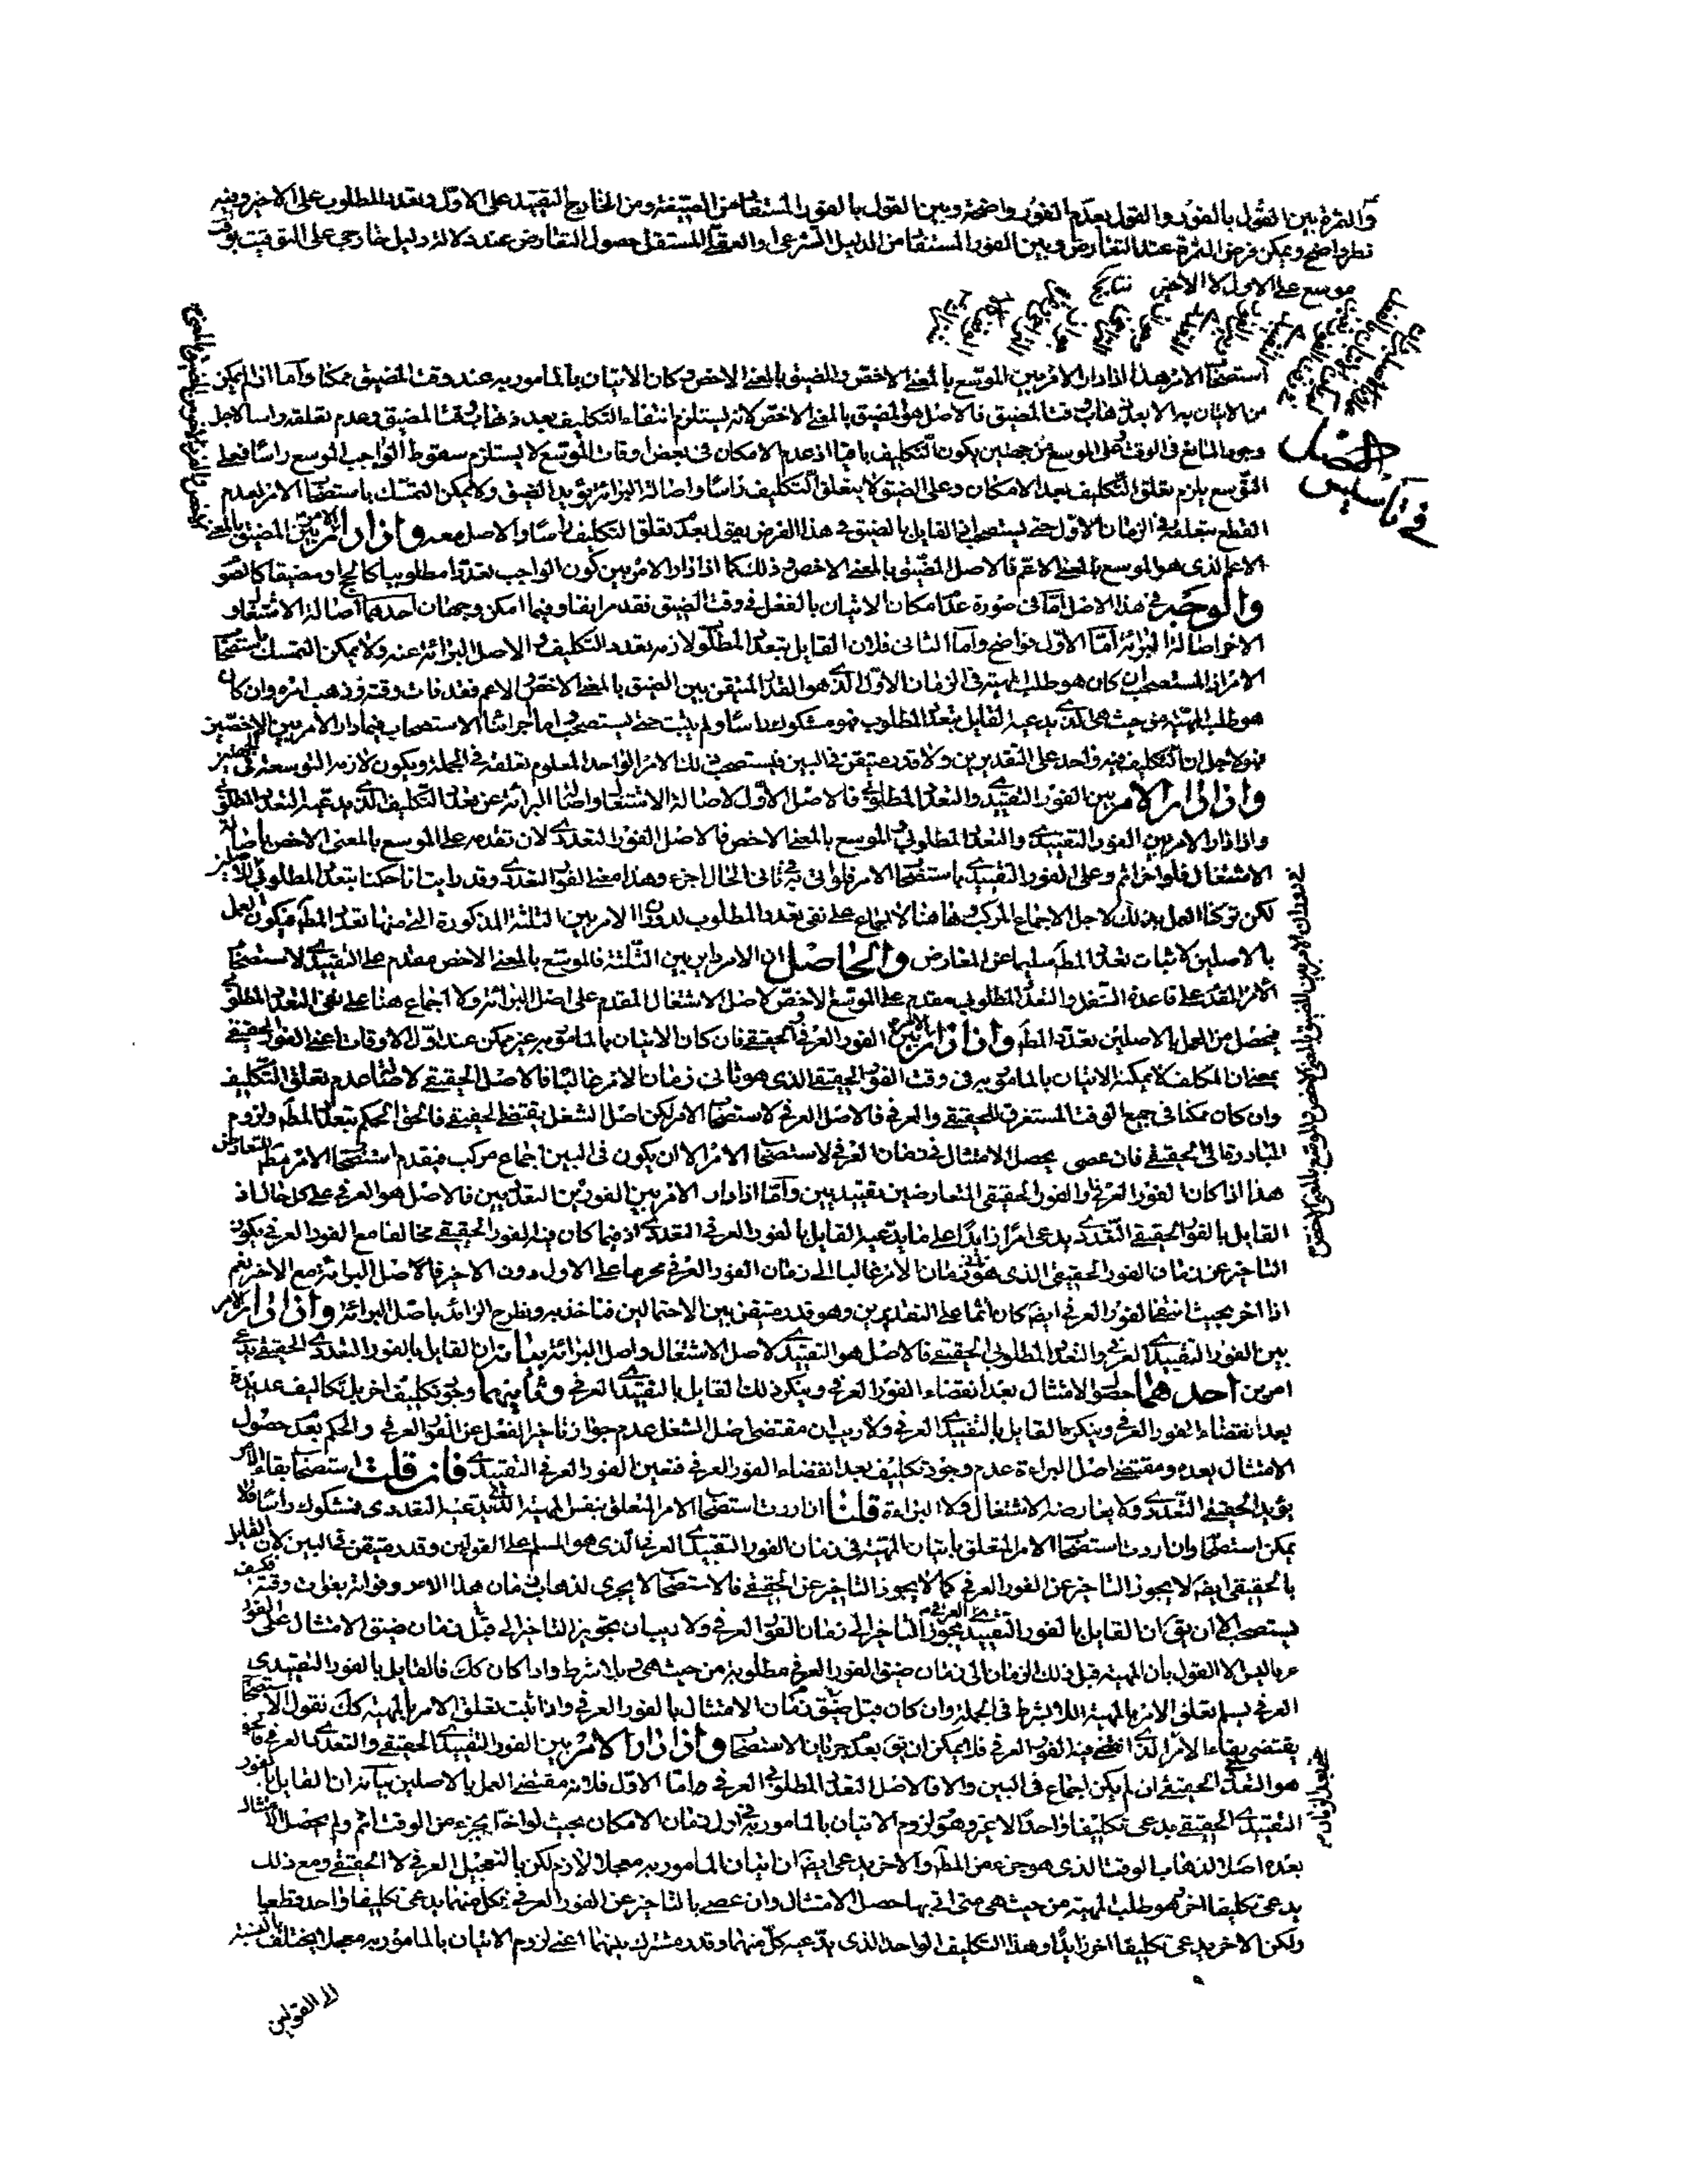 والثمرة بين القول بالفور والقول بعدم الفور واضحة وبين القول بالفور المستفاد من الصيغة ومن الخارج التقييد على الاول وتعدد المطلوب على الاخير وفيه
نظر واضح ويمكن فرض الثمرة عند التعارض وبين الفور المستفاد من الدليل الشرعى او العقلى المستقل حصول التعارض عند دلالة دليل خارجى على التوقيت بوقت
موسع على الاول لا الاخير
فى تاسيس
استصحاب الامر هذا اذا دار الامر بين الموسع بالمعنى الاخص والمضيق بالمعنى الاخص وكان الاتيان بالمامور به عند وقت المضيق ممكنا واما اذا لم يكن
من الاتيان به الا بعد ذهاب وقت المضيق فالاصل هو المضيق بالمعنى الاخص لانه يستلزم انتفاء التكليف بعد ذهاب وقت المضيق وعدم تعلقه راسا لاجل
وجود المانع فى الوقت وعلى الموسع من جهتين يكون التكليف باقيا اذ عدم الامكان فى بعض اوقات الموسع لا يستلزم سقوط الواجب الموسع راسا فعلى
التوسع يلزم تعلق التكليف بعد الامكان وعلى الضيق لا يتعلق التكليف راسا واصالة البرائة يؤيد الضيق ولا يمكن التمسك باستصحاب الامر لعدم
القطع بتعلقه فى الزمان الاول حتى يستصحب اذ القايل بالضيق فى هذا الفرض يقول بعدم تعلق التكليف راسا والاصل معه واذا دار الامر بين المضيق بالمعنى
الاعم الذى هو الموسع بالمعنى الاعم فالاصل المضيق بالمعنى الاخص وذلك كما اذا دار الامر بين كون الواجب تعددا مطلوبيا كالحج او مضيقا كالصو
والوجه فى هذا الاصل اما فى صورة عدم امكان الاتيان بالفعل فى وقت الضيق فقد مر انفا وفيما امكن وجهان احدهما اصالة الاشتغال و
الاخر اصالة البرائة اما الاول فواضح واما الثانى فلان القايل بتعدد المطلوب لازمه تعدد التكليف والاصل البرائة عنه ولا يمكن التمسك باستصحاب
الامر اذ المستصحب ان كان هو طلب المهية فى الزمان الاول الذى هو القدر المتيقن بين الضيق بالمعنى الاخص والاعم فقد فات وقته وذهب امره وان كان
هو طلب المهية من حيث هى الذى يدعيه القايل بتعدد المطلوب فهو مشكوك راسا ولم يثبت حتى يستصحب اما اجرائنا الاستصحاب فيما دار الامر بين الاخصين
فهو لاجل ان التكليف فيه واحد على التقديرين ولا قدر متيقن فى البين فيستصحب ذلك الامر الواحد المعلوم تعلقه فى الجملة ويكون لازمه التوسعة فى
واذا دار الامر بين الفور التقييدى والتعدد المطلوبى فالاصل الاول لاصالة الاشتغال واصالة البرائة عن تعدد التكليف الذى يدعيه التعدد المطلوبى
واذا دار الامر بين الفور التقييدى والتعدد المطلوبى والموسع بالمعنى الاخص فالاصل الفور التعددى لان تقدمه على الموسع بالمعنى الاخص باصالة
الاشتغال فلو اخر اثم وعلى الفور التقييدى باستصحاب الامر فلو اتى به فى ثانى الحال اجزء وهذا معنى الفور التعددى وقد رايت انا حكمنا بتعدد المطلوب
لكن تركنا العمل بذلك لاجل الاجماع المركب وهاهنا لا اجماع على نفى تعدد المطلوب لدوران الامر بين الثلثة المذكورة التى منها تعدد المط فيكون العمل
بالاصلين لاثبات تعدد المط سليما عن المعارض والحاصل ان الامر دار بين الثلثة فالموسع بالمعنى الاخص مقدم على التقييدى لاستصحاب
الامر المقدم على قاعدة الشغل والتعدد المطلوبى مقدم على الموسع الاخص لاصل الاشتغال المقدم على اصل البرائة ولا اجماع هنا على نفى التعدد المطلوبى
فيحصل من العمل بالاصلين تعدد المط واذا دار الامر بين الفور العرفى والحقيقى فان كان الاتيان بالمامور به غير ممكن عند اول الاوقات اعنى الفور الحقيقى
بمعنى ان المكلف لا يمكنه الاتيان بالمامور به فى وقت الفور الحقيقى الذى هو ثانى زمان الامر غالبا فالاصل الحقيقى لاصالة عدم تعلق التكليف
وان كان ممكنا فى جميع الوقت المستغرق للحقيقى والعرفى فالاصل العرفى لاستصحاب الامر لكن اصل الشغل يقتضى الحقيقى فالحق الحكم بتعدد المط ولزوم
المبادرة الى الحقيقى فان عصى يحصل الامتثال فى زمان العرفى لاستصحاب الامر الا ان يكون فى البين اجماع مركب فيقدم استصحاب الامر
هذا اذا كان الفور العرفى والفور الحقيقى المتعارضين تقييديين واما اذا دار الامر بين الفورين التعدديين فالاصل هو العرفى على كل حال اذ
القايل بالفور الحقيقى التعددى يدعى امرا زايدا على ما يدعيه القايل بالفور العرفى التعددى اذ فيما كان فيه الفور الحقيقى مخالفا مع الفور العرفى يكون
التاخير عن زمان الفور الحقيقى الذى هو ثانى زمان الامر غالبا الى زمان الفور العرفى محرما على الاول دون الاخير فالاصل البرائة مع الاخير نعم
اذا اخر بحيث انتفى الفور العرفى ايضا كان اثما على التقديرين وهو قدر متيقن بين الاحتمالين فناخذ به ونطرح الزائد باصل البرائة واذا دار الامر
بين الفور التقييدى العرفى والتعدد المطلوبى الحقيقى فالاصل هو التقييدى لاصل الاشتغال واصل البرائة بيانه ان القايل بالفور التعددى الحقيقى يدعى
امرين احدهما حصول الامتثال بعد انقضاء الفور العرفى وينكر ذلك القايل بالتقييدى العرفى وثانيهما وجود تكليف اخر بل تكاليف عديدة
بعد انقضاء الفور العرفى وينكرها القايل بالتقييدى العرفى ولا ريب ان مقتضى اصل الشغل عدم جواز تاخير الفعل عن الفور العرفى والحكم بعدم حصول
الامتثال بعده ومقتضى اصل البراءة عدم وجود تكليف بعد انقضاء الفور العرفى فتعين الفور العرفى التقييدى فان قلت استصحاب بقاء الامر
يؤيد الحقيقى التعددى ولا يعارضه الاشتغال ولا البراءة قلنا ان اردت استصحاب الامر المتعلق بنفس المهية الذى يدعيه التعددى فمشكوك راسا فلا
يمكن استصحابه وان اردت استصحاب الامر المتعلق باتيان المهية فى زمان الفور التقييدى العرفى الذى هو المسلم على القولين وقدر متيقن فى البين لان القايل
بالحقيقى ايضا لا يجوز التاخير عن الفور العرفى كما لا يجوز التاخير عن الحقيقى فالاستصحاب لا يجرى لذهاب زمان هذا الامر وفواته بفوات وقته فكيف
يستصحب الا ان يق ان القايل بالفور التقييدى العرفى يجوز التاخير الى زمان الفور العرفى ولا ريب ان تجويز التاخير الى قبل زمان ضيق الامتثال على الفور
عرفا ليس الا القول بان المهية قبل ذلك الزمان الى زمان ضيق الفور العرفى مطلوبة من حيث هى بلا شرط واذا كان كك فالقايل بالفور التقييدى
العرفى يسلم تعلق الامر بالمهية اللا بشرط فى الجملة وان كان قبل ضيق زمان الامتثال بالفور العرفى واذا ثبت تعلق الامر بالمهية كك نقول الاستصحاب
يقتضى بقاء الامر الذى انقضى فيه الفور العرفى فلا يمكن ان يق بعدم جريان الاستصحاب واذا دار الامر بين الفور التقييدى الحقيقى والتعددى العرفى فالحق
هو التعدد الحقيقى ان لم يكن اجماع فى البين والا فالاصل التعدد المطلوبى العرفى اما الاول فلانه مقتضى العمل بالاصلين بيانه ان القايل بالفور
التقييدى الحقيقى يدعى تكليفا واحدا لا غير وهو لزوم الاتيان بالمامور به فى اول زمان الامكان بحيث لو اخر بجزء من الوقت اثم ولم يحصل الامتثال
بعده اصلا لذهاب الوقت الذى هو جزء من المط والاخر يدعى ايضا ان اتيان المامور به معجلا لازم لكن بالتعجيل العرفى لا الحقيقى ومع ذلك
يدعى تكليفا اخر وهو طلب المهية من حيث هى متى اتى بها حصل الامتثال وان عصى بالتاخير عن الفور العرفى فكل منهما يدعى تكليفا واحدا قطعيا
ولكن الاخر يدعى تكليفا اخر زايدا وهذا التكليف الواحد الذى يدعيه كل منهما وقدر مشترك بينهما اعنى لزوم الاتيان بالمامور به معجلا يختلف بالنسبة
الى القولين